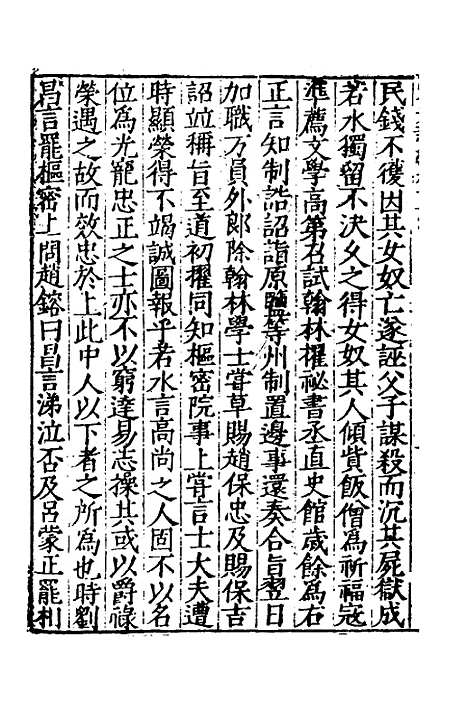 民錢不獲因其女奴亡遂誣父子謀殺而沉其屍獄成
若水獨留不決久之得女奴其人傾貲飯僧爲祈福冦
準薦文學高第召試翰林擢祕書丞直史館歲餘爲右
正言知制誥詔詣原鹽等州制置邊事還奏合旨翌日
加職方員外郎除翰林學士嘗草賜趙保忠及賜保吉
詔並稱旨至道初擢同知樞密院事上嘗言士大夫遭
時顯榮得不竭誠圖報乎若水言高尚之人固不以名
位爲光寵忠正之士亦不以窮達易志操其或以爵祿
榮遇之故而效忠於上此中人以下者之所爲也時劉
昌言罷樞密上問趙鎔曰昌言涕泣否及呂蒙正罷相